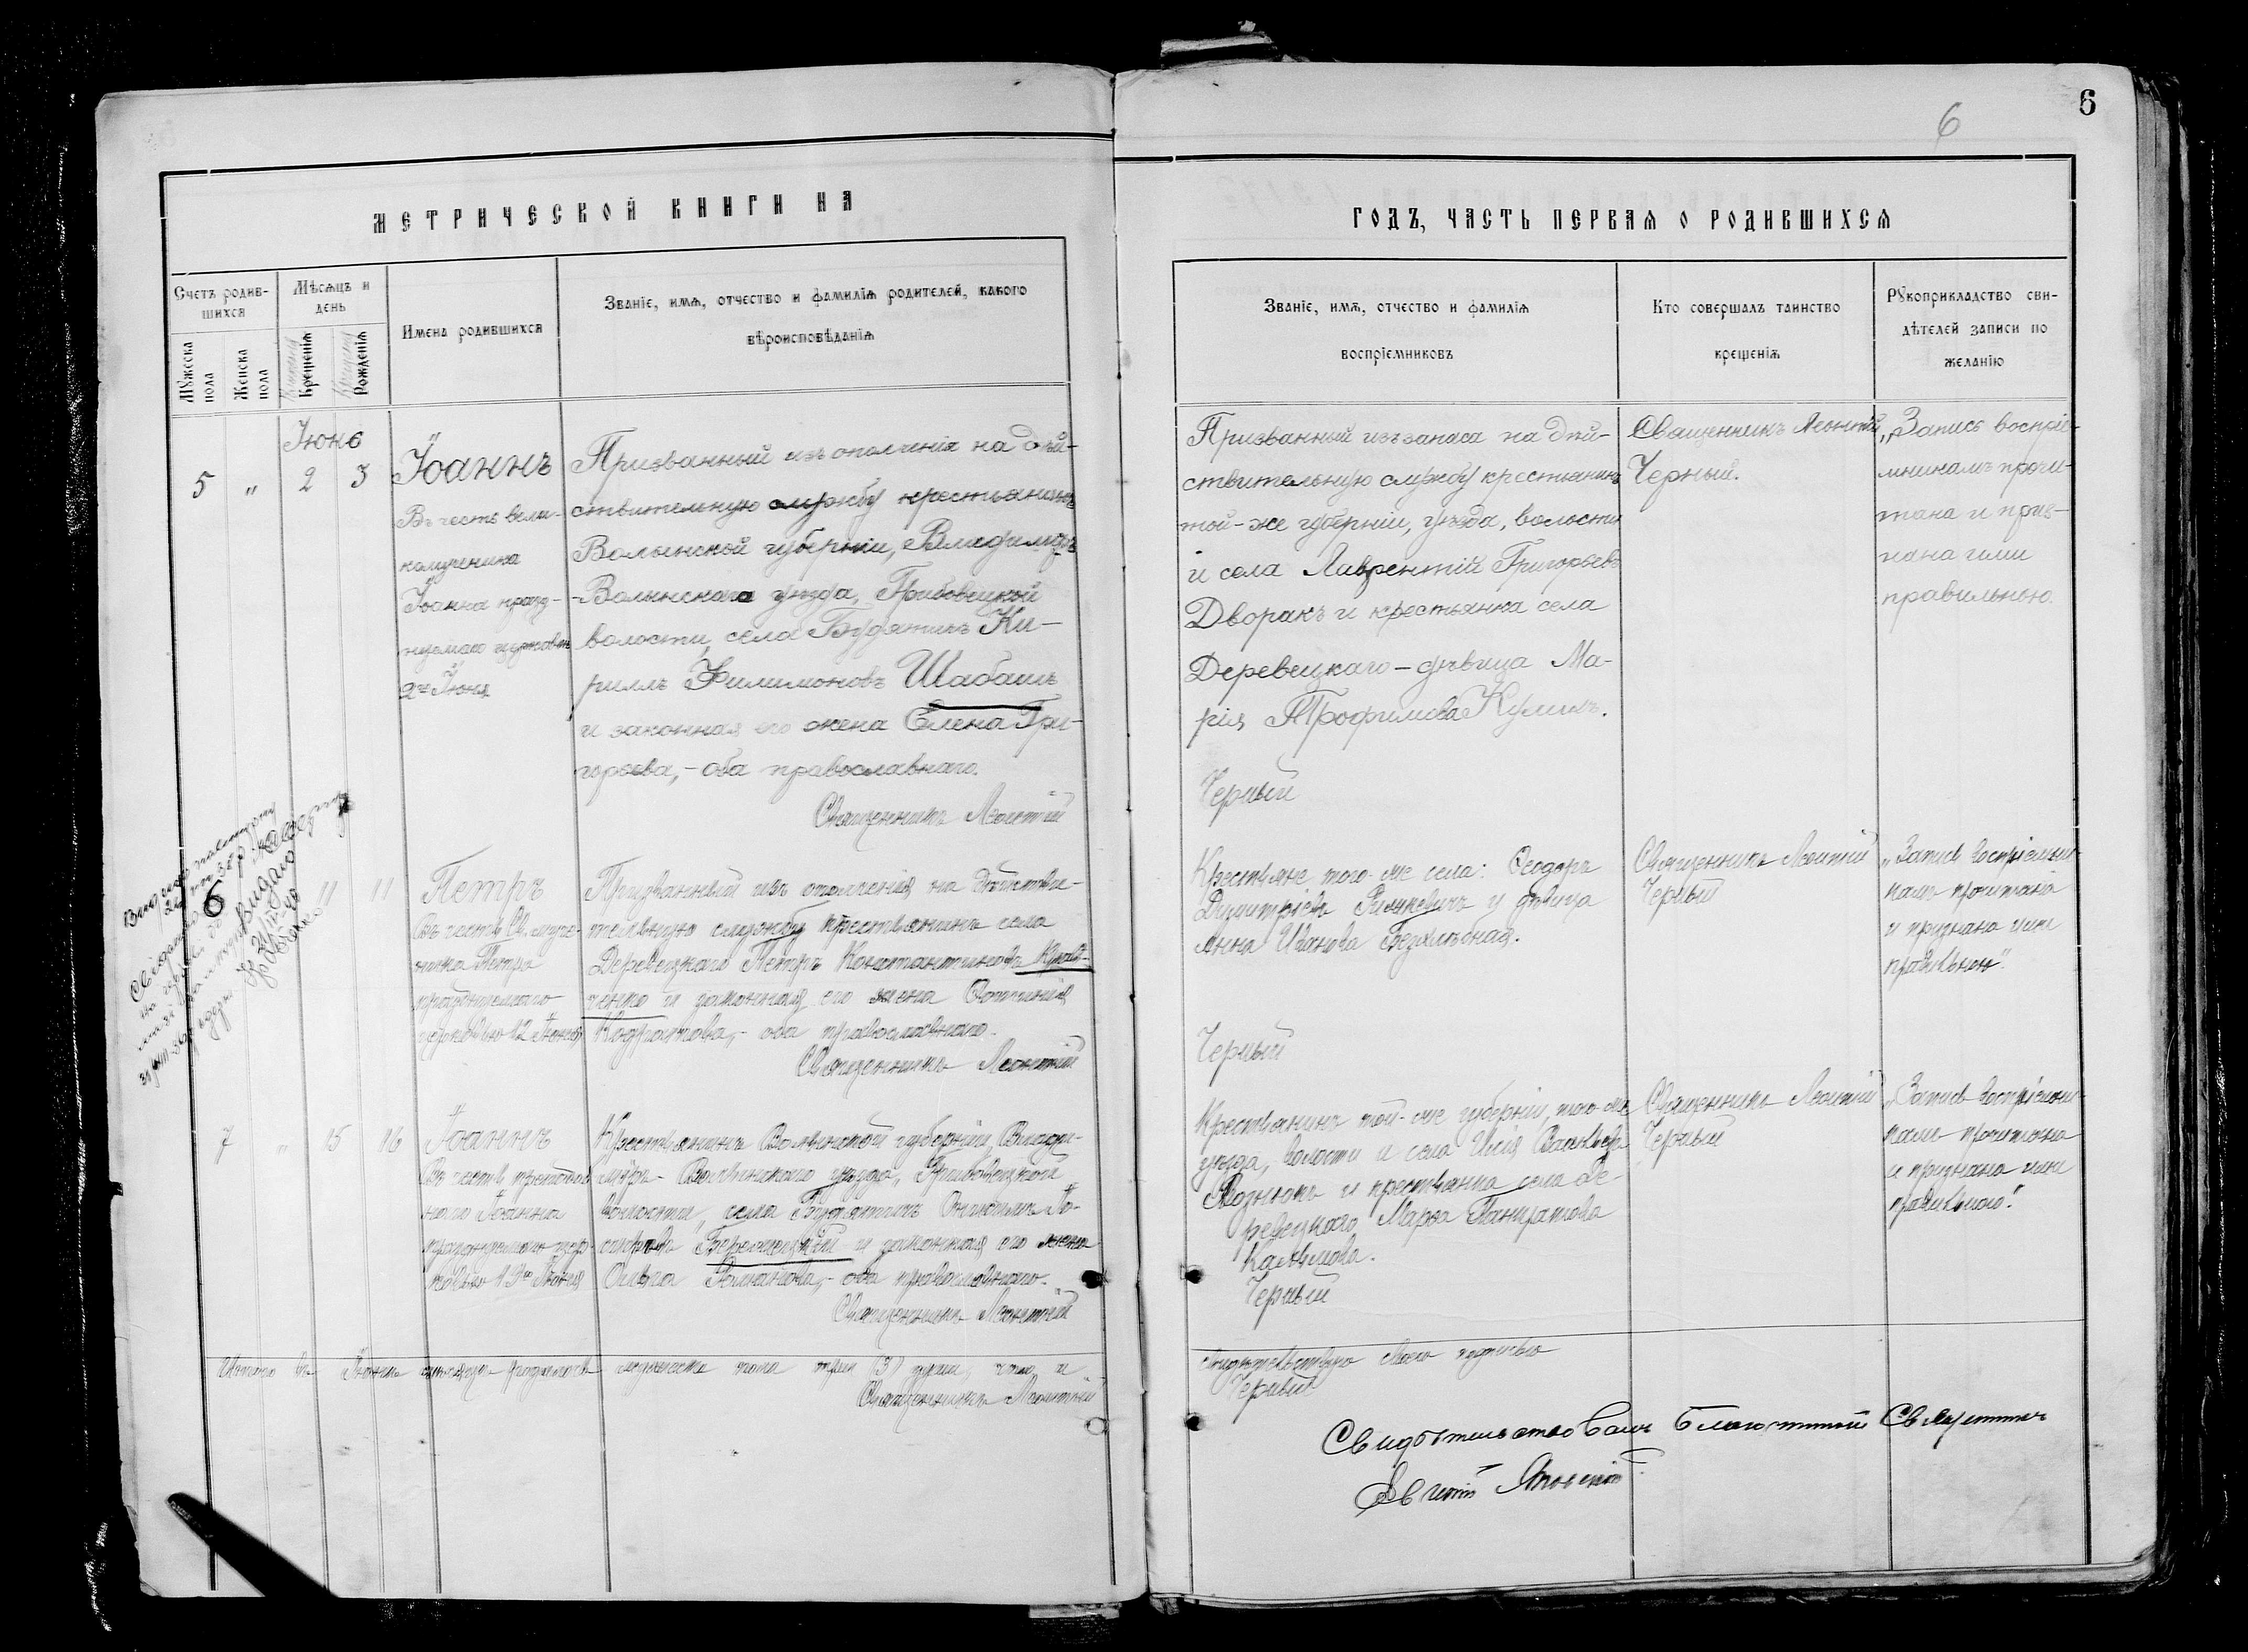 6
6
МЕТРИЧЕСКОЙ КНИГИ НА
ГОДЪ, ЧАСТЬ ПЕРВАЯ О РОДИВШИХСЯ
Счетъ родив-
шихся
Мѣсяцъ и
день
Мужеска
пола
Женска
пола
Крещенія
Рожденія
Имена родившихся
Званіе, имя, отчество и фамилія родителей, какого
вѣроисповѣданія
Званіе, имя, отчество и фамилія
воспріемниковъ
Кто совершалъ таинство
крещенія
Рукоприкладство сви-
дѣтелей записи по
желанію
Іюнь
5 „ 2 3
Іоаннъ
Въ честь вели-
комученика
Іоанна празд-
нуемаго церковью
2го Іюня
Призванный изъ ополченія на дѣй-
ствительную службу крестьянинъ
Волынской губерніи, Владиміръ
-Волынскаго уѣзда, Грибовецкой
волости, села Будятичъ Ки-
риллъ Филимоновъ Шабашъ
и законная его жена Елена Гри-
горьева,- оба православнаго.
Священникъ Леонтій
Призванный изъ запаса на дѣй-
ствительную службу крестьянинъ
той-же губерніи, уѣзда, волости
и села Лаврентій Григорьевъ
Дворакъ и крестьянка села
Деревецкаго - дѣвица Ма-
рія Трофимова Кулишъ.
Черный
Священникъ Леонтій
Черный.
„Запись воспріе-
мникамъ прочи-
тана и приз-
нана ими
правильною.
6 11 11
Видано
Петръ
Въ честь Св. муче-
ника Петра
празднуемаго
церковью 12 Іюня
Призванный изъ ополченія на дѣйстви-
тельную службу крестьянинъ села
Деревецкаго Петръ Константиновъ Крав-
ченко и законная его жена
Кодратова,- оба православнаго.
Священникъ Леонтій
Крестьяне того-же села: Ѳеодоръ
Димитріевъ и дѣвица
Анна Иванова Безхлѣбная.
Черный
Священникъ Леонтій
Черный
„Запись воспріемни-
камъ прочитана
и признана ими
правильною".
7 „ 15 16
Іоаннъ
Въ честь преподоб-
наго Іоанна
празднуемаго цер-
ковью 19го Іюня
Крестьянинъ Волынской губерніи, Влади-
міръ-Волынскаго уѣзда, Грибовецкой
волости, села Будятичъ Онисимъ Іо-
сифовъ и законная его жена
Ольга Романова,- оба православнаго.
Священникъ Леонтій
Крестьянинъ той-же губерніи, того-же
уѣзда, волости и села Илія Васильевъ
Вознюкъ и крестьянка села Де-
ревецкаго Марѳа Панкратова
Черный
Священникъ Леонтій
Черный
„Запись воспріемни-
камъ прочитана
и признана ими
правильною".
Итого въ Іюнѣ мѣсяцѣ родилось мужеска пола три (3) души, что и
Священникъ Леонтій
свидѣтельствую своею подписью
Черный
Свидѣтельствовалъ Благочинный Священникъ